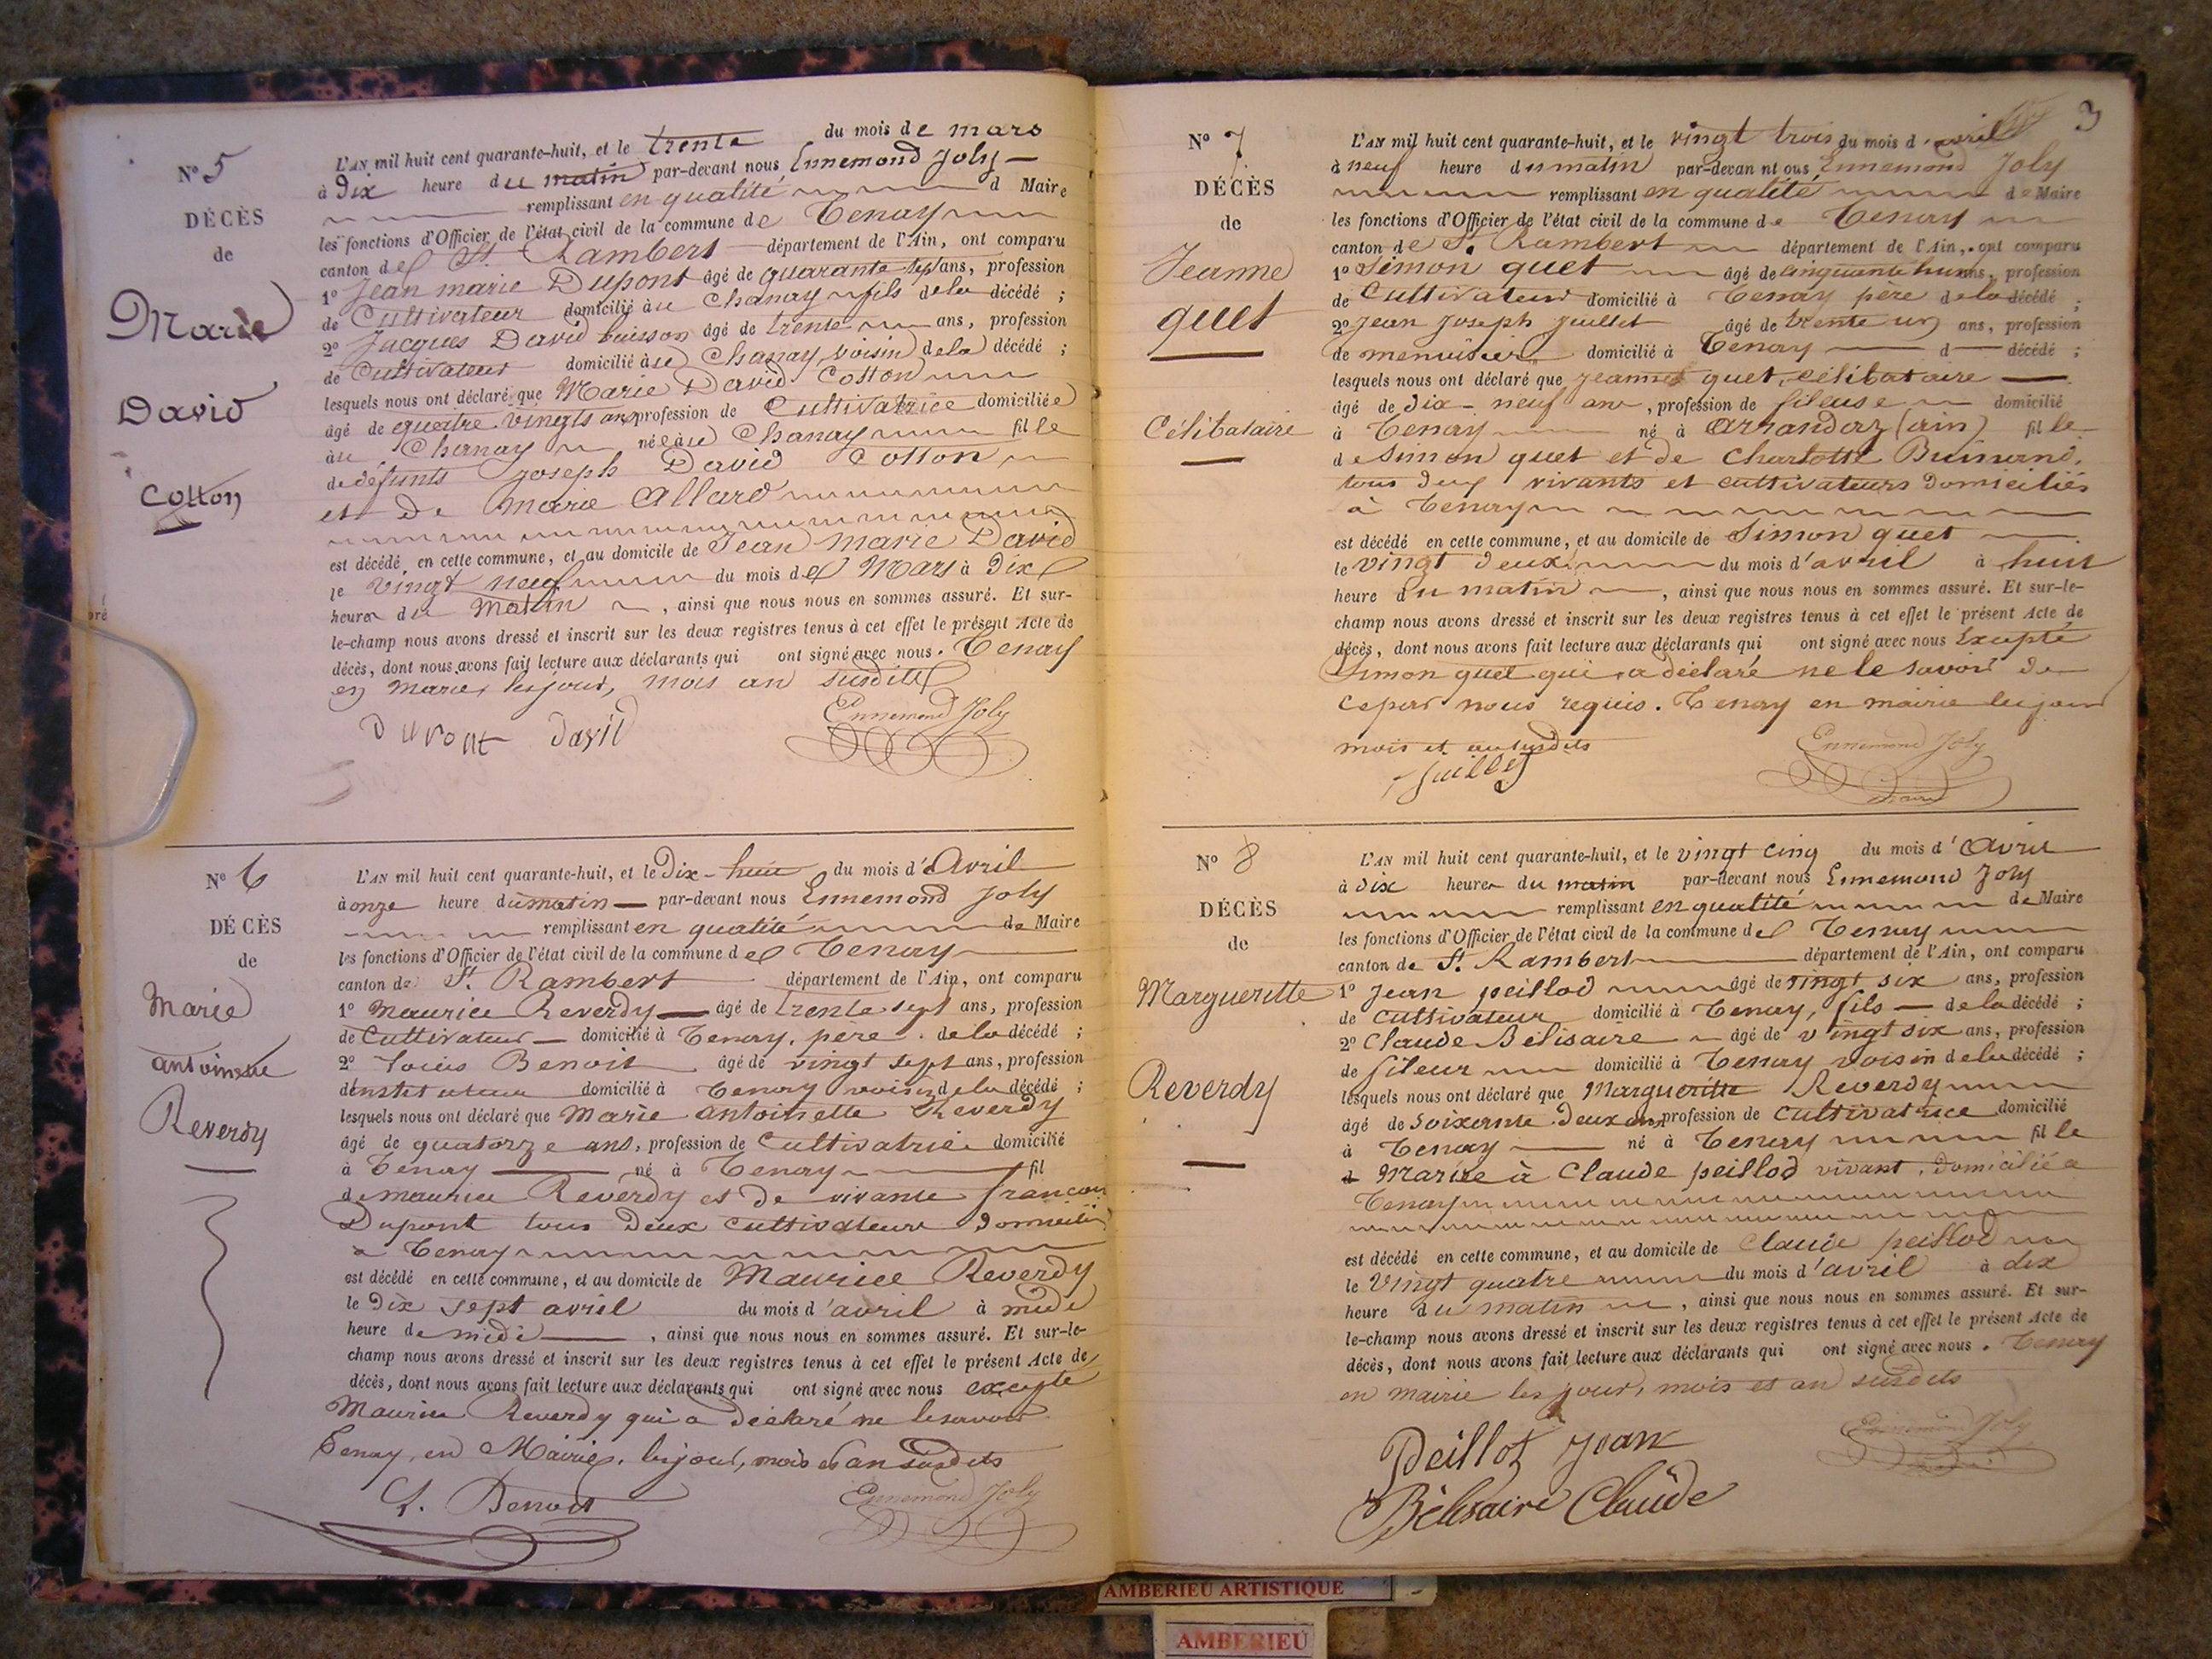 N° 5
DÉCÈS
de
Marie
David
Cotton
L'AN mil huit cent quarante-huit, et le trente du mois de mars
à Dix heure du matin par-devant nous Ennemond Joly
remplissant en qualité d Maire
les fonctions d'Officier de l'état civil de la commune de Tenay
canton de St. Rambert département de l'Ain, ont comparu
1° Jean marie Dupont âgé de quarante sept ans, profession
de Cultivateur domicilié au Chanay fils de la décédé ;
2° Jacques David buisson âgé de trente ans, profession
de Cultivateur domicilié au Chanay voisin de la décédé ;
lesquels nous ont déclaré que Marie David Cotton
âgé de quatre vingts ans profession de Cultivatrice domiciliée
au Chanay née au Chanay fille
de défunts Joseph David Cotton
et De Marie Allard
est décédé en cette commune, et au domicile de Jean Marie David
le vingt neuf du mois de Mars à Dix
heures du Matin , ainsi que nous nous en sommes assuré. Et sur-
le-champ nous avons dressé et inscrit sur les deux registres tenus à cet effet le présent Acte de
décès, dont nous avons fait lecture aux déclarants qui ont signé avec nous. Tenay
en Mairie, les jour, mois an susdits
Dupont David
Ennemond Joly
N° 6
DÉCÈS
de
Marie
antoinette
Reverdy
L'AN mil huit cent quarante-huit, et le Dix-huit du mois d'Avril
à onze heure du matin par-devant nous Ennemond Joly
remplissant en qualité de Maire
les fonctions d'Officier de l'état civil de la commune de Tenay
canton de St. Rambert département de l'Ain, ont comparu
1° Maurice Reverdy âgé de trente sept ans, profession
de Cultivateur domicilié à Tenay, pere de la décédé ;
2° Louis Benoit âgé de vingt sept ans, profession
d'instituteur domicilié à Tenay voisin de la décédé ;
lesquels nous ont déclaré que Marie antoinette Reverdy
âgé de quatorze ans, profession de Cultivatrice domicilié
à Tenay né à Tenay fil
de maurice Reverdy et de vivante
Dupont tous Deux cultivateurs
a Tenay
est décédé en cette commune, et au domicile de Maurice Reverdy
le Dix sept avril du mois d'avril à midi
heure de midi , ainsi que nous nous en sommes assuré. Et sur-le-
champ nous avons dressé et inscrit sur les deux registres tenus à cet effet le présent Acte de
décès, dont nous avons fait lecture aux déclarants qui ont signé avec nous excepté
Maurice Reverdy qui a déclaré ne le savoir
Tenay, en Mairie, les jour, mois et an susdits
L. Benoit
Ennemond Joly
3
N° 7
DÉCÈS
de
Jeanne
quet
Célibataire
L'AN mil huit cent quarante-huit, et le vingt trois du mois d'avril
à neuf heure du matin par-devan nt ous Ennemond Joly
remplissant en qualité de Maire
les fonctions d'Officier de l'état civil de la commune de Tenay
canton de St. Rambert département de l'Ain, ont comparu
1° Simon quet âgé de cinquante huit ans, profession
de Cultivateur domicilié à Tenay père de la décédé ;
2° Jean Joseph Juillet âgé de trente un ans, profession
de menuisier domicilié à Tenay d décédé ;
lesquels nous ont déclaré que Jeanne quet, célibataire
âgé de dix-neuf ans, profession de fileuse domicilié
à Tenay né à Arrandaz (ain) fille
de Simon quet et de Charlotte
tous deux vivants et cultivateurs domiciliés
à Tenay
est décédé en cette commune, et au domicile de Simon quet
le vingt deux du mois d'avril à huit
heure du matin , ainsi que nous nous en sommes assuré. Et sur-le-
champ nous avons dressé et inscrit sur les deux registres tenus à cet effet le présent Acte de
décès, dont nous avons fait lecture aux déclarants qui ont signé avec nous Excepté
Simon quet qui a déclaré ne le savoir de
ce par nous requis. Tenay en mairie les jour
mois et an susdits
Juillet
Ennemond Joly
N° 8
DÉCÈS
de
Margueritte
Reverdy
L'AN mil huit cent quarante-huit, et le vingt cinq du mois d'Avril
à dix heures du matin par-devant nous Ennemond Joly
remplissant en qualité de Maire
les fonctions d'Officier de l'état civil de la commune de Tenay
canton de St. Rambert département de l'Ain, ont comparu
1° Jean peillod âgé de vingt six ans, profession
de cultivateur domicilié à Tenay, fils de la décédé ;
2° Claude Bélisaire âgé de vingt six ans, profession
de fileur domicilié à Tenay voisin de la décédé ;
lesquels nous ont déclaré que Margueritte Reverdy
âgé de soixante Deux ans profession de cultivatrice domicilié
à Tenay né à Tenay fille
d Mariée à Claude peillod vivant, domicilié a
Tenay
est décédé en cette commune, et au domicile de Claude peillod
le Vingt quatre du mois d'avril à dix
heure du matin , ainsi que nous nous en sommes assuré. Et sur-
le-champ nous avons dressé et inscrit sur les deux registres tenus à cet effet le présent Acte de
décès, dont nous avons fait lecture aux déclarants qui ont signé avec nous. Tenay
en mairie les jour, mois et an susdits
Peillot Jean
Bélisaire Claude
Ennemond Joly
AMBERIEU ARTISTIQUE
AMBERIEU